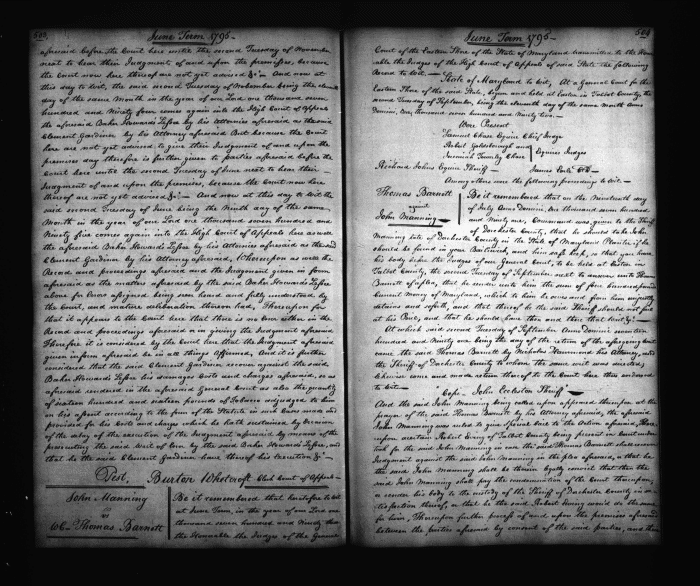 500
June Term 1795
aforesaid before the Court here until the second Tuesday of November
next to hear their Judgment of and upon the premises, because
the Court now here thereof are not yet advised &c. And now at
this day to wit, the said second Tuesday of November being the
day of the same Month in the year of our Lord one thousand seven
hundred and Ninety four came again into the High Court of Appeals
the aforesaid Baker Howards Lessee by his Attornies aforesaid as the said
Clement Gardiner by his Attorney aforesaid But because the Court
here are not yet advised to give their Judgment of and upon the
premises day therefore is further given to parties aforesaid before the
Court here until the second Tuesday of June next to hear their
Judgment of and upon the premises, because the Court now here
thereof are not yet advised &c. And now at this day to wit the
said second Tuesday of June being the Ninth day of the same
Month in the year of our Lord one thousand seven hundred and
Ninety five comes again into the High Court of Appeals here as well
the aforesaid Baker Howards Lessee by his Attornies aforesaid as the said
Clement Gardiner by his Attorney aforesaid, Whereupon as well the
Record and proceedings aforesaid and the Judgment given in form
aforesaid as the matters aforesaid by the said Baker Howards Lessee
above for Errors assigned, being seen heard and fully understood by the
Court, and mature deliberation thereon had, Thereupon for
that it appears to the Court here that there is no Error either in the
Record and proceedings aforesaid or in giving the Judgment aforesaid
Therefore it is considered by the Court here that the Judgment aforesaid
given in form aforesaid be in all things Affirmed, And it is further
considered that the said Clement Gardiner recover against the said
Baker Howards Lessee his damages Costs and charges aforesaid, so as
aforesaid rendered in the aforesaid General Court as also the quantity
of sixteen hundred and sixteen pounds of Tobacco adjudged to him
on his assent according to the form of the Statute in such Case made and
provided for his Costs and charge which he hath sustained by occasion
of the delay of the execution of the Judgment aforesaid by means of the
prosecuting the said Writ of Error by the said Baker Howards Lessee, and
that he the said Clement Gardiner have thereof his execution &c
Test, Burton Whetcroft Clk Court of Appeals
John Manning
vs
Thomas Barnett
Be it remembered that heretofore to wit
at June Term, in the year of our Lord one
thousand seven hundred and Ninety three
the Honorable the Judges of the General
June Term 1795
Court of the Eastern Shore of the State of Maryland transmitted to the Hono
rable the Judges of the High Court of Appeals of said State the following
Record to wit.
State of Maryland to wit, At a General Court for the
Eastern Shore of the said State, begun and held at Easton in Talbot County, the
second Tuesday of September, being the eleventh day of the same Month Anno
Domini, one thousand seven hundred and Ninety two
Were Present
Samuel Chase Esquire Chief Judge
Robert Goldsborough and
Jeremiah Townley Chase
Esquires Judges
Richard Johns Esquire Sheriff
James Earle Clk
Among others were the following proceedings to wit
Thomas Barnett
against
John Manning
Be it remembered that on the Nineteenth day
of July Anno Domini, one thousand seven hundred
and Ninety one, Command was given to the Sheriff
of Dorchester County, that he should take John
Manning late of Dorchester County in the State of Maryland Planter if he
should be found in your Bailiwick, and him safe keep, so that you have
his body before the Judges of our General Court, to be held at Easton in
Talbot County, the second Tuesday of September next to answer unto Thomas
Barnett of a plea, that he render unto him the sum of four hundred pounds
Current money of Maryland, which to him he owes and from him unjustly
detains and saith, and that thereof he the said Sheriff should not fail
at his Peril, and that he should have then and there that writ &c
At which said second Tuesday of September Anno Domini seventeen
hundred and Ninety one being the day of the return of the aforegoing Writ
came the said Thomas Barnett by Nicholas Hammond his Attorney, and
the Sheriff of Dorchester County to whom the same writ was directed
likewise came and made return thereof to the Court here thus endorsed
to wit
"Cepi. John Eccleston Sheriff"
And the said John Manning being called upon appeared thereupon at the
prayer of the said Thomas Barnett by his Attorney aforesaid, the aforesaid
John Manning was ruled to give special Bail to the Action aforesaid, There
upon a certain Robert Ewing of Talbot County being present in Court under
took for the said John Manning in case the said Thomas Barnett shall recover
Judgment against the said John Manning in the plea aforesaid, or that he
the said John Manning shall be thereon legally convict that then the
said John Manning shall pay the condemnation of the Court thereupon,
or render his body to the custody of the Sheriff of Dorchester County in sa
tisfaction thereof, or that he the said Robert Ewing would do the same
for him, Thereupon further process of and upon the premises aforesaid
between the parties aforesaid by consent of the said parties, and